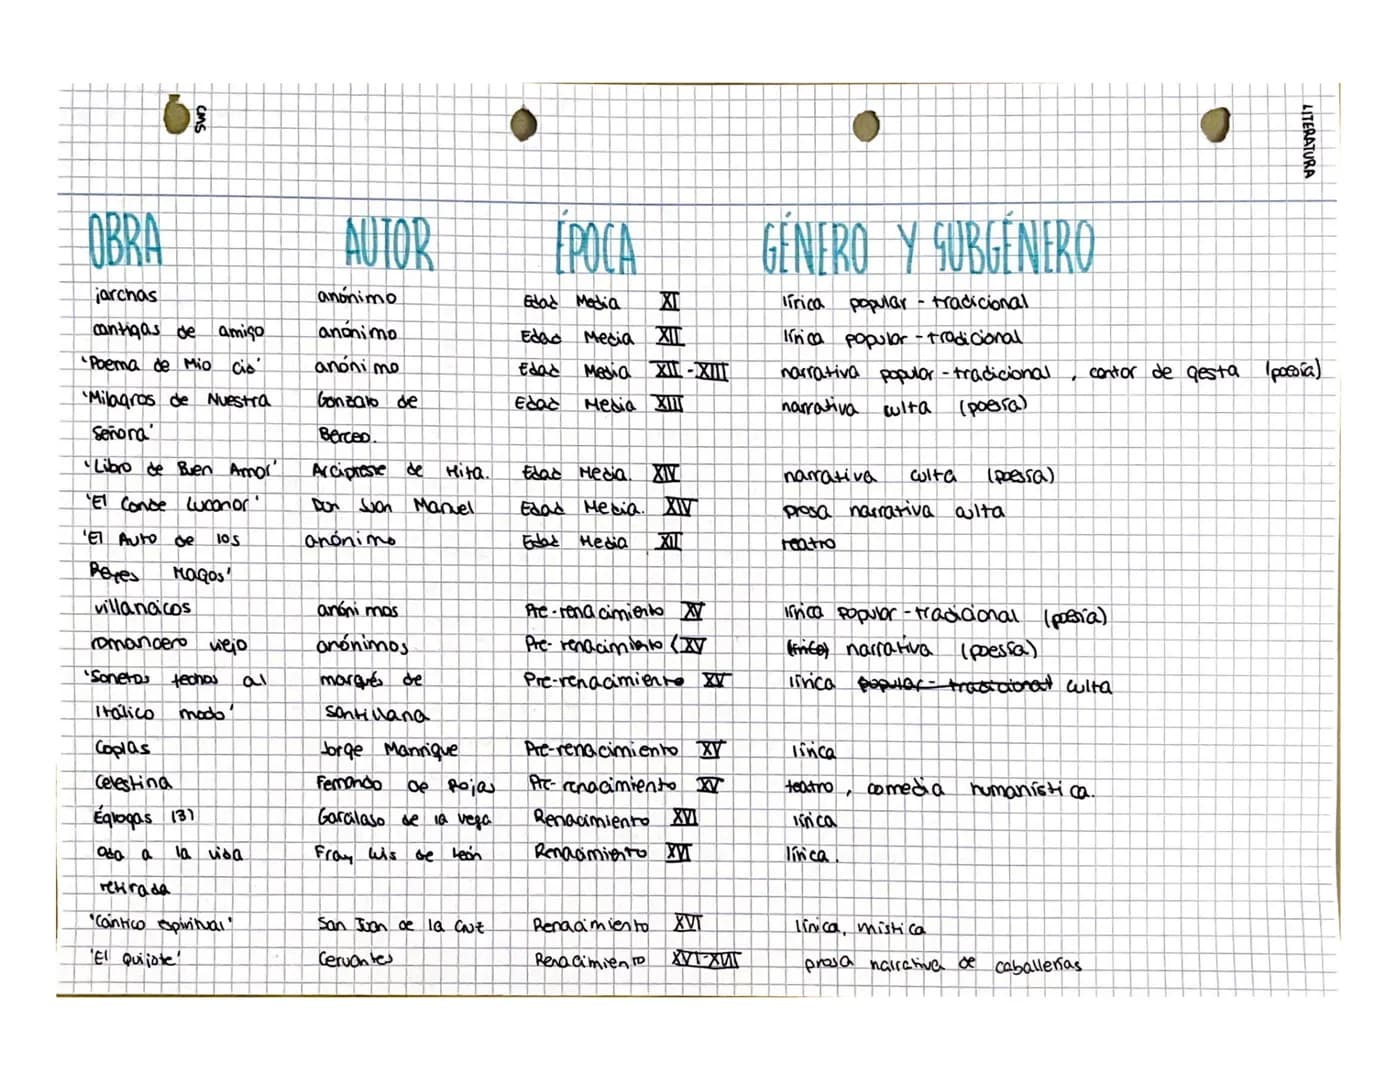 CMS
LITERATURA
OBRA AUTOR ÉPOCA GÉNERO Y SUBGÉNERO
jarchas anónimo Edad Media XI lírica popular - tradicional
cantigas de amigo anónimo Edad Media XII lírica popular - tradicional
'Poema de Mio Cid' anónimo Edad Media XII - XIII narrativa popular - tradicional, cantar de gesta (poesía)
'Milagros de Nuestra Gonzalo de Edad Media XIII narrativa culta (poesía)
Señora' Berceo.
'Libro de Buen Amor' Arcipreste de Hita. Edad Media. XIV narrativa culta (poesía)
'El Conde Lucanor' Don Juan Manuel Edad Media. XIV prosa narrativa culta
'El Auto de los anónimo Edad Media XII teatro
Reyes Magos'
villancicos anónimos Pre-renacimiento XV lírica popular - tradicional (poesía)
romancero viejo anónimos Pre-renacimiento (XV (lírica) narrativa (poesía)
'Sonetos fechos al marqués de Pre-renacimiento XV lírica popular - tradicional culta
itálico modo' Santillana
Coplas Jorge Manrique Pre-renacimiento XV lírica
Celestina Fernando de Rojas Pre-renacimiento XV teatro, comedia humanística.
Églogas (3) Garcilaso de la Vega Renacimiento XVI lírica
oda a la vida Fray Luis de León Renacimiento XVI lírica.
retirada
'Cántico espiritual' San Juan de la Cruz Renacimiento XVI lírica, mística
'El Quijote' Cervantes Renacimiento XVI-XVII prosa narrativa de caballerías